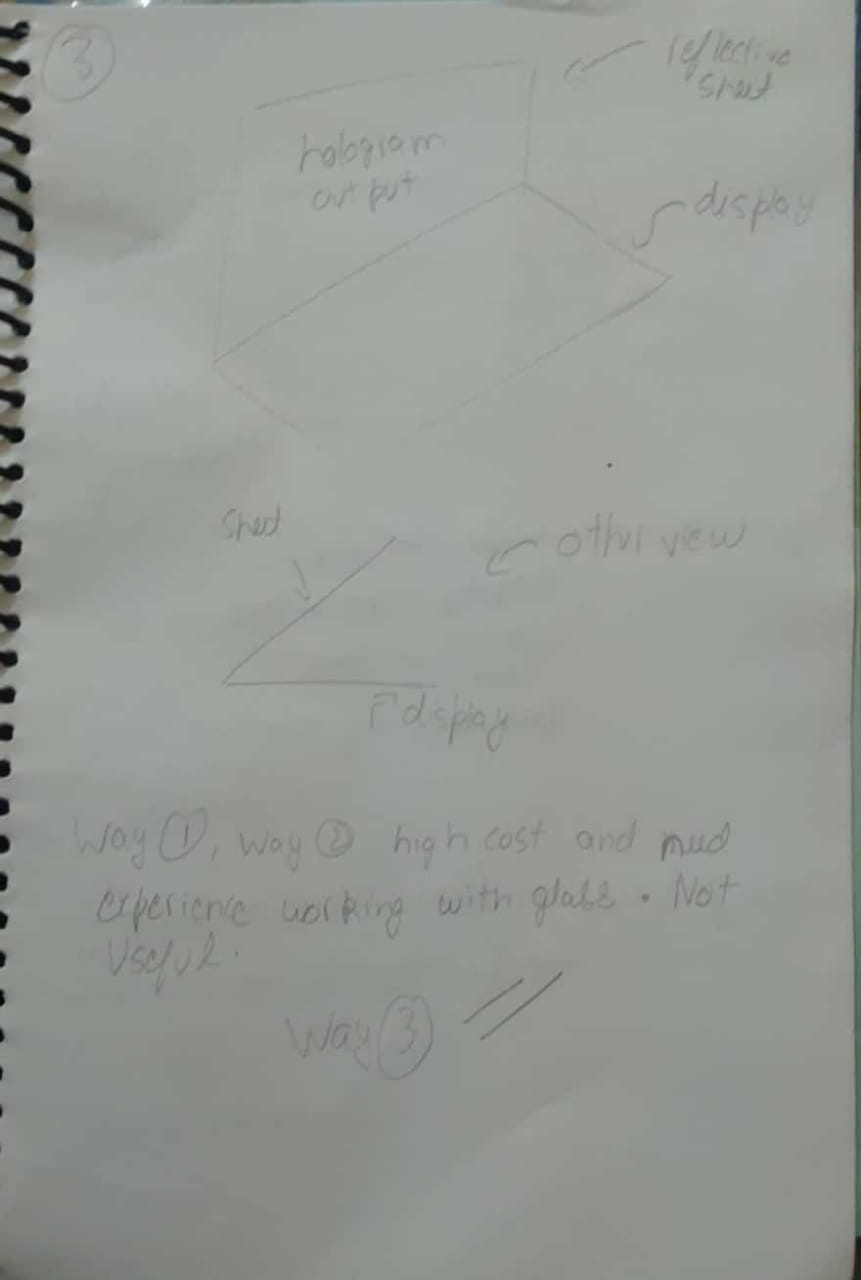 3
reflective
sheet
hologram
output
display
sheet
other view
display
Way ①, Way ② high cost and need
experience working with glass. Not
Useful.
Way ③ //